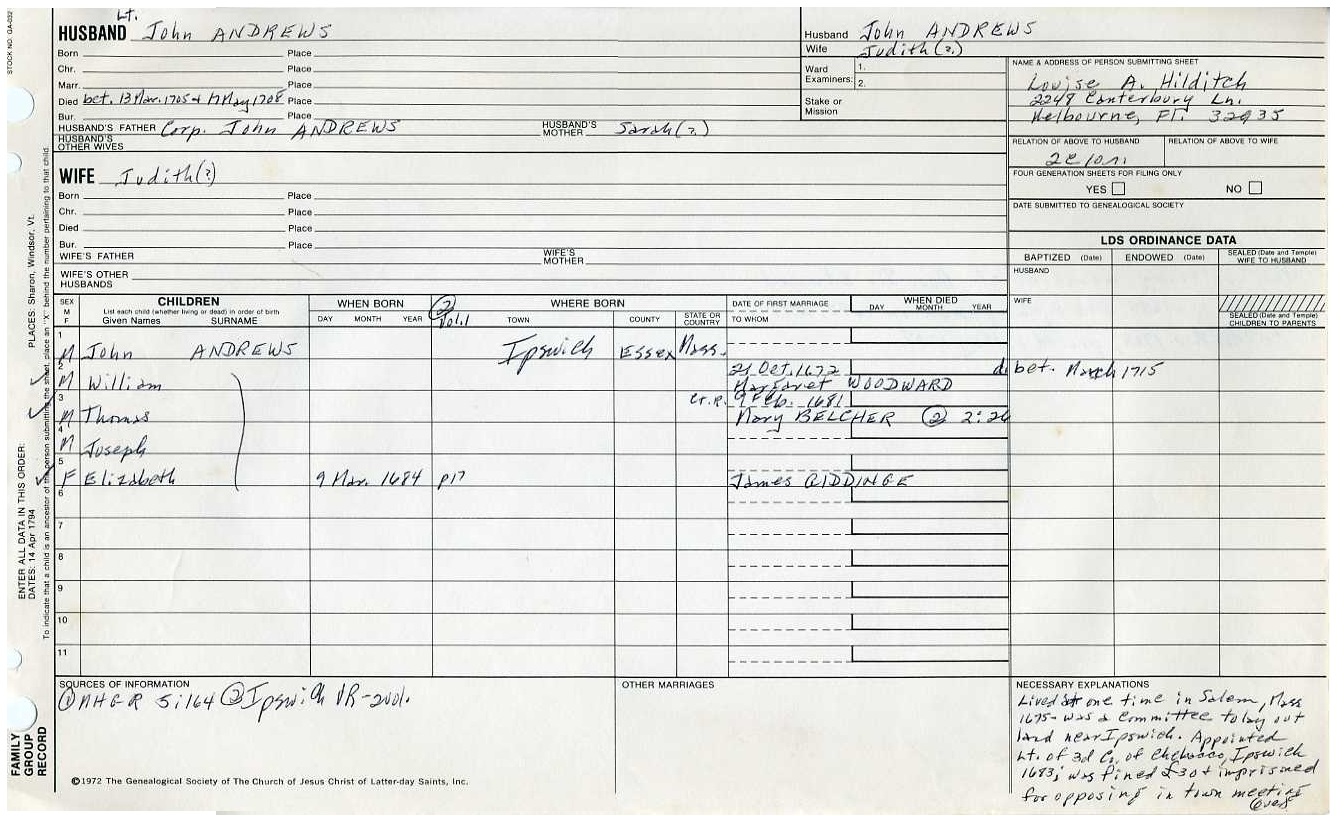 STOCK NO. GA-032
Lt.
HUSBAND John ANDREWS
Born Place
Chr. Place
Marr. Place
Died bet. 13 Mar. 1705 & 17 May 1708 Place
Bur. Place
HUSBAND'S FATHER Corp. John ANDREWS HUSBAND'S MOTHER Sarah (?)
HUSBAND'S OTHER WIVES
Husband John ANDREWS
Wife Judith (?)
Ward Examiners: 1.
2.
Stake or Mission
NAME & ADDRESS OF PERSON SUBMITTING SHEET
Louise A. Hilditch
2249 Canterbury Ln.
Melbourne, Fl. 32935
RELATION OF ABOVE TO HUSBAND RELATION OF ABOVE TO WIFE
FOUR GENERATION SHEETS FOR FILING ONLY
YES NO
DATE SUBMITTED TO GENEALOGICAL SOCIETY
WIFE Judith (?)
Born Place
Chr. Place
Died Place
Bur. Place
WIFE'S FATHER WIFE'S MOTHER
WIFE'S OTHER HUSBANDS
LDS ORDINANCE DATA
BAPTIZED (Date) ENDOWED (Date) SEALED (Date and Temple) WIFE TO HUSBAND
HUSBAND
WIFE
SEALED (Date and Temple) CHILDREN TO PARENTS
SEX M F
CHILDREN
List each child (whether living or dead) in order of birth
Given Names SURNAME
WHEN BORN
DAY MONTH YEAR
② Vol. 1
WHERE BORN
TOWN COUNTY STATE OR COUNTRY
DATE OF FIRST MARRIAGE
TO WHOM
WHEN DIED
DAY MONTH YEAR
1 M John ANDREWS Ipswich Essex Mass.
2 M William 21 Oct. 1672 Margaret WOODWARD d. bet. March 1715
3 M Thomas Ct. R. 9 Feb. 1681 Mary BELCHER ② 2:26
4 M Joseph
5 F Elizabeth 9 Mar. 1684 p17 James GIDDINGE
6
7
8
9
10
11
SOURCES OF INFORMATION
① NHGR 5:164 ② Ipswich VR-2vol.
OTHER MARRIAGES
NECESSARY EXPLANATIONS
Lived at one time in Salem, Mass
1675- was a Committee to lay out
land near Ipswich. Appointed
Lt. of 3d Co. of Chebacco, Ipswich
1683; was fined £30 & imprisoned
for opposing in town meeting
(over)
©1972 The Genealogical Society of The Church of Jesus Christ of Latter-day Saints, Inc.
FAMILY GROUP RECORD
ENTER ALL DATA IN THIS ORDER:
DATES: 14 Apr 1794
PLACES: Sharon, Windsor, Vt.
To indicate that a child is an ancestor of the person submitting the sheet, place an "X" behind the number pertaining to that child.